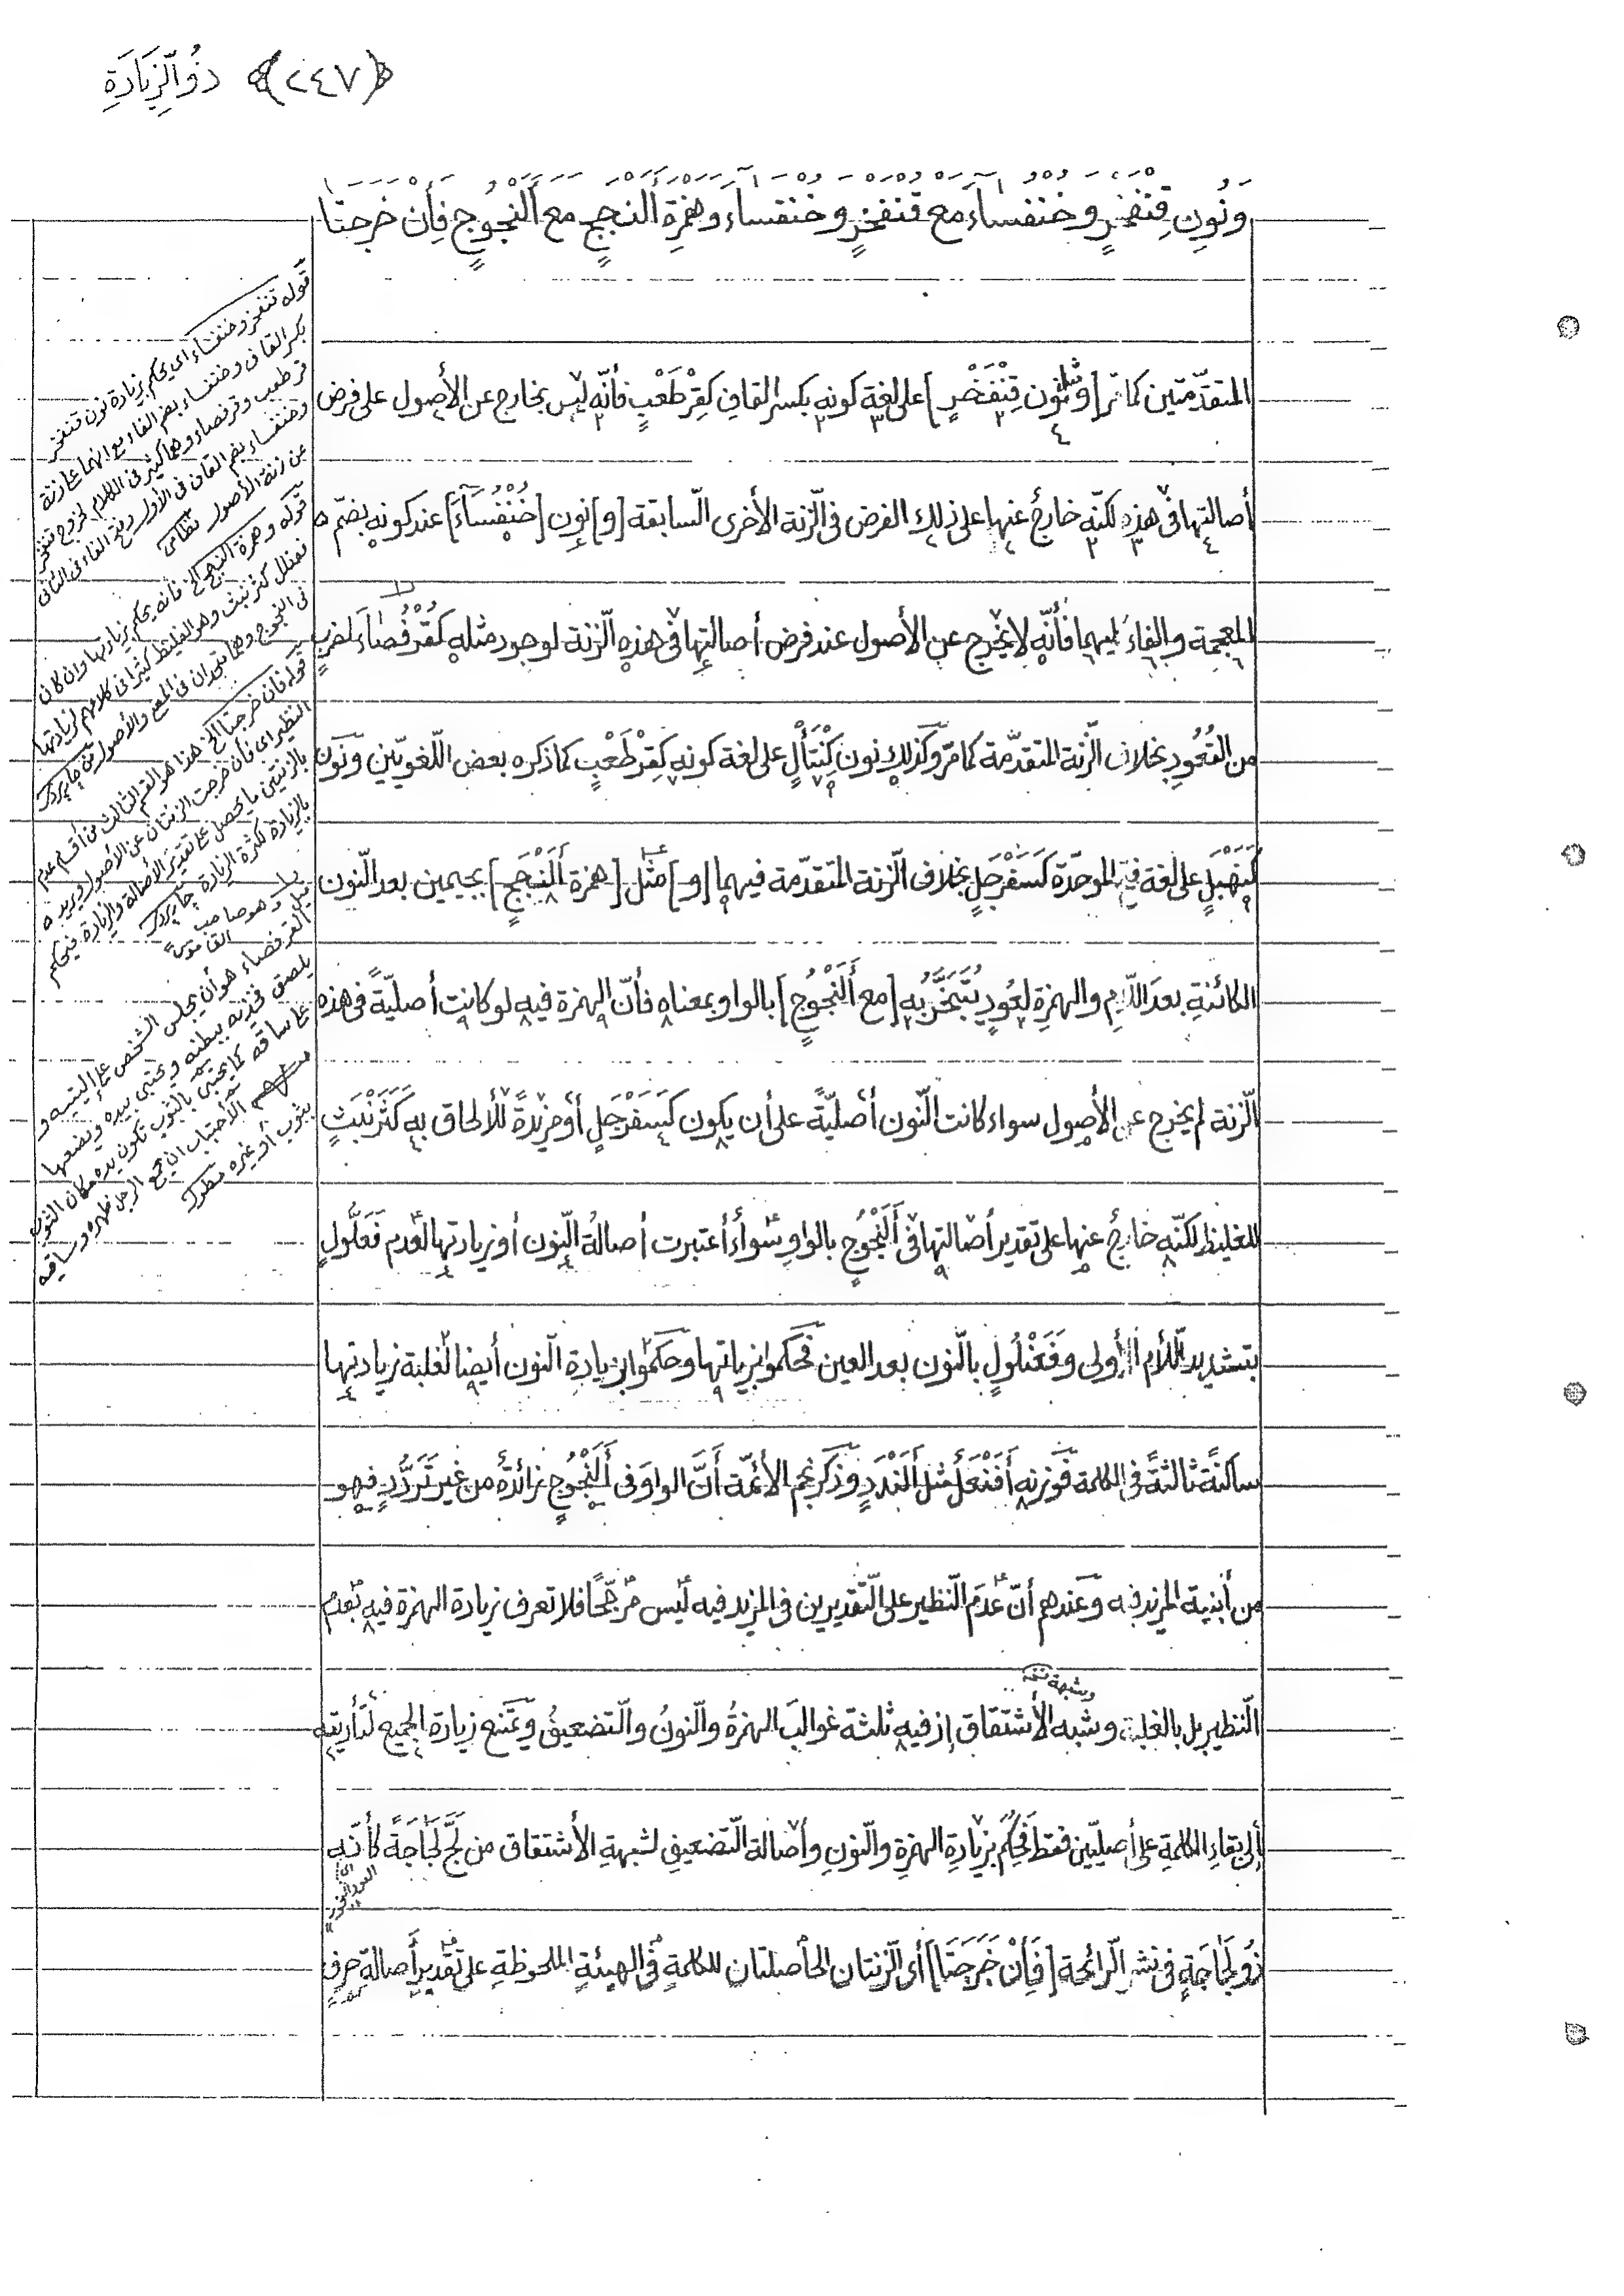 ذُو الزِّيَادَةِ ﴿٢٤٧﴾
وَنُونِ قِنْفَخْرٍ وَخُنْفُسَاءَ مَعَ قُنْفَخْرٍ وَخُنْفَسَاءَ وَهَمْزَةِ أَلَنْجَجٍ مَعَ أَلَنْجُوجٍ فَإِنْ خَرَجَتَا
المتقدّمتين كما مرّ [و] مثل [نون قِنْفَخْرٍ] على لغة كونه بكسر القاف كقِرْطَعْبٍ فأنّه ليس بخارج عن الأصول على فرض
أصالتها فى هذه لكنّه خارجٌ عنها على ذلك الفرض فى الزنة الأخرى السّابقة [و] نون [خُنْفُسَآءَ] عند كونه بضمّ
المعجمة والفاء ليهما فأنّه لا يخرج عن الأصول عند فرض أصالتها فى هذه الزنة لوجود مثله كقُرْفُصَاءَ لضربٍ
من القُعُودِ بخلاف الزّنة المتقدّمة كما مرّ وكذلك نون كِنْتَأْلٍ على لغة كونه كقِرْطَعْبٍ كما ذكره بعض اللّغويّين ونون
كَنَهْبَلٍ على لغة فتح الموحّدة كَسَفَرْجَلٍ بخلاف الزنة المتقدّمة فيهما [و] مثل [همزة أَلَنْجَجٍ] بجيمين بعد النّون
الكائنةِ بعد اللّامِ والهمزةِ لعُودٍ يُتَبَخَّرُ به [مع أَلَنْجُوجٍ] بالواو بمعناه فأنّ الهمزة فيه لو كانت أصليّةً فى هذه
الزّنة لم يخرج عن الأصول سواء كانت النّون أصليّةً على أن يكون كَسَفَرْجَلٍ أو مزيدةً للألحاق به كَشَرَنْبَثٍ
للغليظ لكنّه خارجٌ عنها على تقدير أصالتها فى أَلَنْجُوجٍ بالواو سواءٌ أعتبرت أصالةُ النّون أو زيادتها لعدم فَعَلُّولٍ
بتشديد اللّام الأولى وفَعَنْلُولٍ بالنّون بعد العين فحكموا بزيادتها وحكموا بزيادة النّون أيضا لغلبة زيادتها
ساكنةً ثالثةً فى الكلمة فوزنه أَفَنْعَلٌ مثل أَلَنْدَدٍ وذكر نجم الأئمّة أَنَّ الواوَ فى أَلَنْجُوجٍ زائدةٌ من غير تَرَدُّدٍ فهو
من أبنية المزيد فيه وعندهم أنّ عدم النّظير على التّقديرين فى المزيد فيه ليس مرجّحًا فلا تعرف زيادة الهمزة فيه بعدم
وشبهة نسخه
النّظير بل بالغلبة وشبه الأشتقاق إذ فيه ثلثة غوالب الهمزةُ والنّونُ والتّضعيفُ ويمتنع زيادة الجميع لتأديته
إلى بقاءِ الكلمةِ على أصليّين فقط فحكم بزيادةِ الهمزةِ والنّونِ وأصالة التّضعيفِ لشبهةِ الأشتقاق من لَجَّ لَجَاجَةً كأنّه
اى العود
ذُو لَجَاجَةٍ فى نشر الرّائحة [فَأِنْ خَرَجَتَا] أى الزّنتان الحاصلتان للكلمةِ فى الهيئةِ الملحوظةِ على تقدير أصالةِ حرفٍ
قوله قنفخر وخنفساء اى يحكم بزيادة نون قنفخر
بكسر القاف وخنفساء بضم الفاء مع انهما على زنة
قرطعب وقرفصاء وهما كثير فى الكلام لخروج قنفخر
وخنفساء بضم القاف فى الأول وفتح الفاء فى الثانى
عن زنة الأصول نظامى
قوله وهمزة النجج الخ فأنه يحكم بزيادتها وان كان
فعنلل كشرنبث وهو الغليظ كثيرا فى كلامهم لزيادتها
فى النجوج وهما متحدان فى المعنى والأصول جاربردى
قوله فأن خرجتا الخ هذا هو القسم الثالث من أقسام عدم
النظير اى فأن خرجت الزنتان عن الأصول ويريد
بالزنتين ما يحصل على تقدير الأصالة والزيادة فيحكم
بالزيادة لكثرة الزيادة جاربردى
وهو صاحب القاموس
القرفصاء هو أن يجلس الشخص على إليتيه و
يلصق فخذيه ببطنه ويحتبى بيديه ويضعهما
على ساقيه كما يحتبى بالثوب تكون يده مكان الثوب
الأحتباء ان يجمع الرجل ظهره وساقيه
بثوب أو غيره